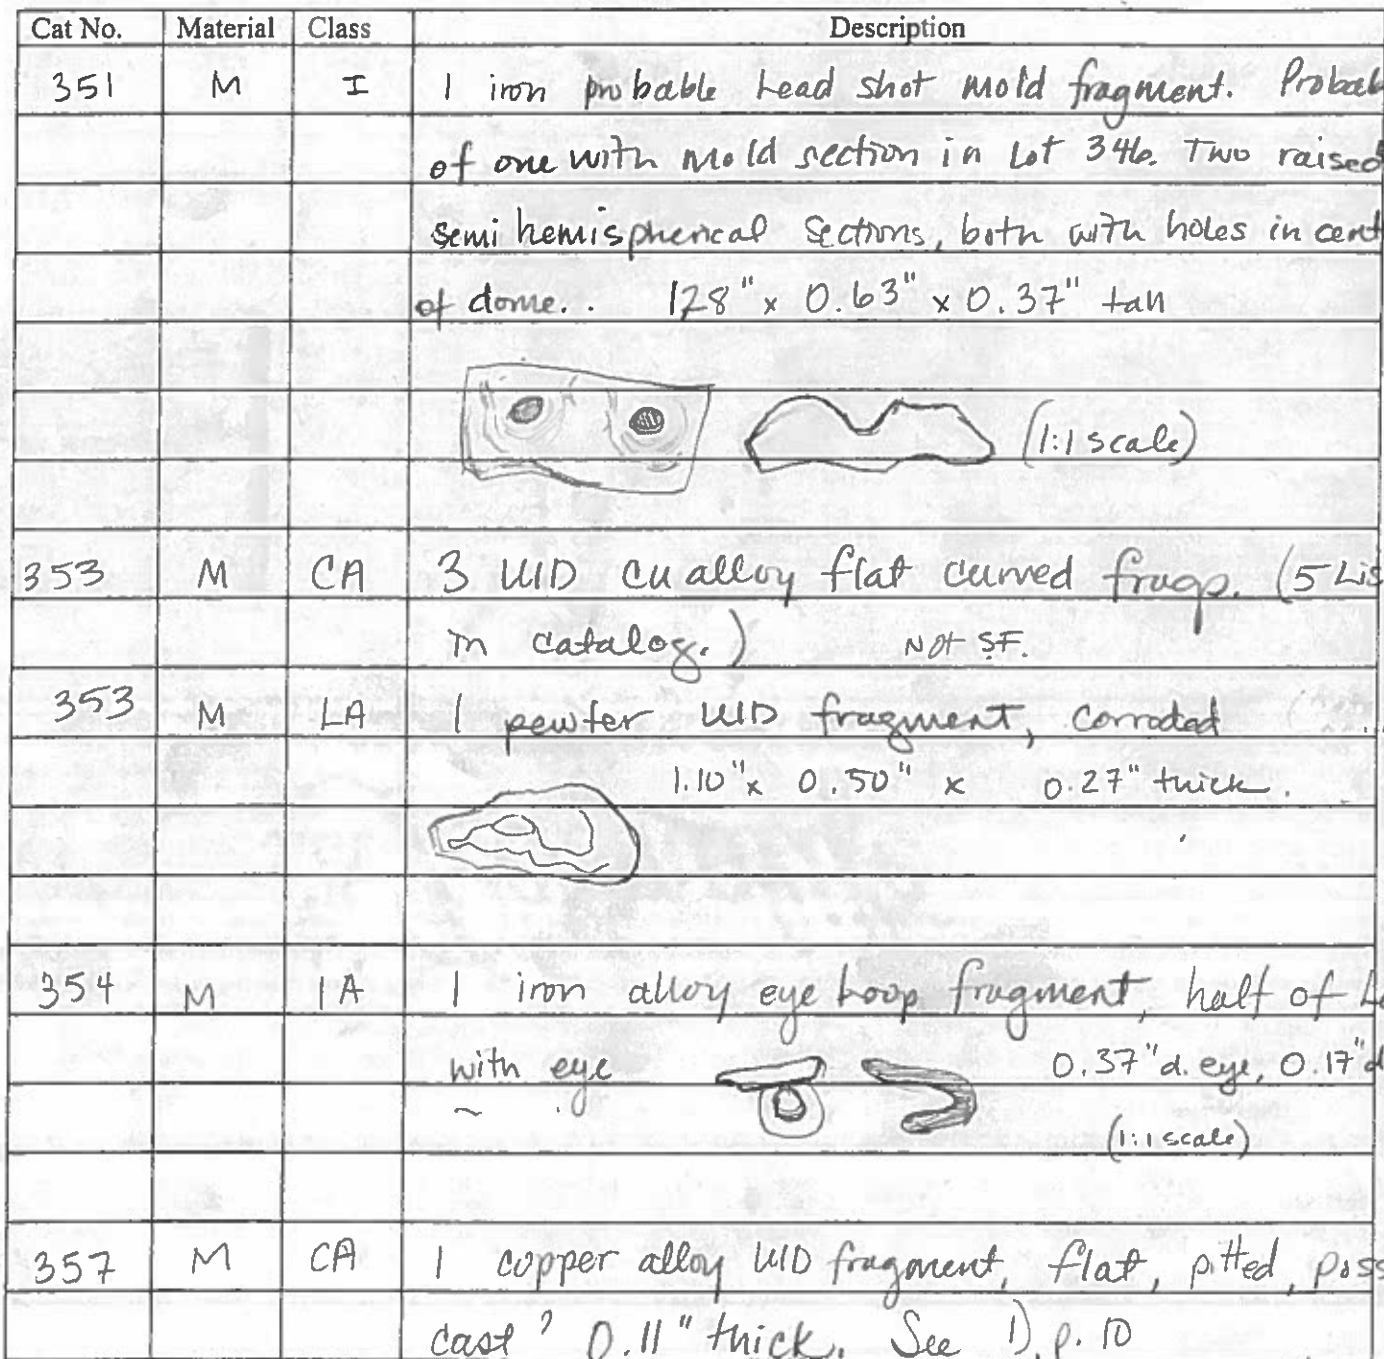 Cat No. Material Class Description
351 M I 1 iron probable Lead shot mold fragment. Probab
of one with mold section in Lot 346. Two raised
semi hemispherical sections, both with holes in cent
of dome.. 1.28" x 0.63" x 0.37" tall
(1:1 scale)
353 M CA 3 UID cu alloy flat curved frags. (5 Lis
in catalog.) Not SF.
353 M LA 1 pewter UID fragment, corroded
1.10" x 0.50" x 0.27" thick.
354 M IA 1 iron alloy eye hoop fragment, half of
with eye 0.37" d. eye, 0.17" d
(1:1 scale)
357 M CA 1 copper alloy UID fragment, flat, pitted, poss
cast? 0.11" thick. See 1), p. 10